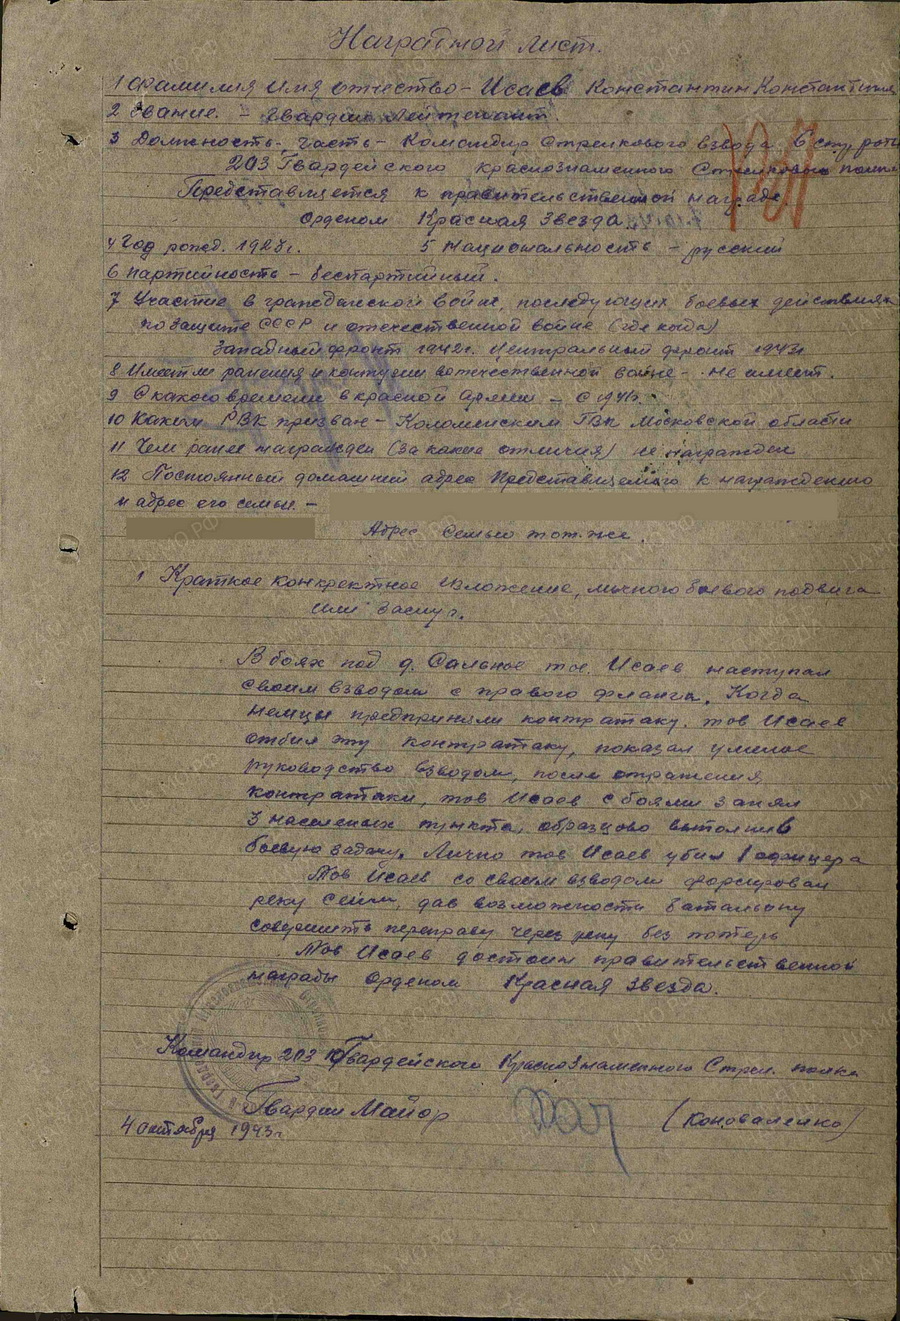 Наградной лист.
1 Фамилия Имя Отчество - Исаев Константин Константин
2 Звание. - Гвардии Лейтенант.
3 Должность, часть - Командир Стрелкового взвода 6 стр роты
203 Гвардейского Краснознаменного Стрелкового полка
Представляется к правительственной награде
Орденом Красная Звезда
4 Год рожд. 5 Национальность - русский
6 партийность - беспартийный.
7 Участие в гражданской войне, последующих боевых действиях
по защите СССР и отечественной войне (где когда)
Западный фронт 1942г. Центральный фронт 1943г
8 Имеет ли ранения и контузии в отечественной войне - не имеет.
9 С какого времени в красной армии - с
10 Каким РВК призван - Коломенским ГВК Московской области
11 Чем ранее награжден (за какие отличия) не награжден
12 Постоянный домашний адрес Представляемого к награждению
и адрес его семьи. -
Адрес семьи тот-же.
1 Краткое конкректное изложение, личного боевого подвига
или заслуг.
В боях под д. тов. Исаев наступал
своим взводом с правого фланга. Когда
немцы предприняли контратаку. тов Исаев
отбил эту контратаку, показал умелое
руководство взводом, после отражения
контратаки, тов Исаев с боями занял
3 населеных пункта, образцово выполнив
боевую задачу. Лично тов Исаев убил 1 офицера
Тов Исаев со своим взводом форсировал
реку Сейм, дав возможность батальону
совершить переправу через реку без потерь
Тов Исаев достоин правительственной
награды Орденом Красная Звезда.
Командир 203 Гвардейского Краснознаменного Стрел. полка
Гвардии Майор (Коноваленко)
4 октября 1943г